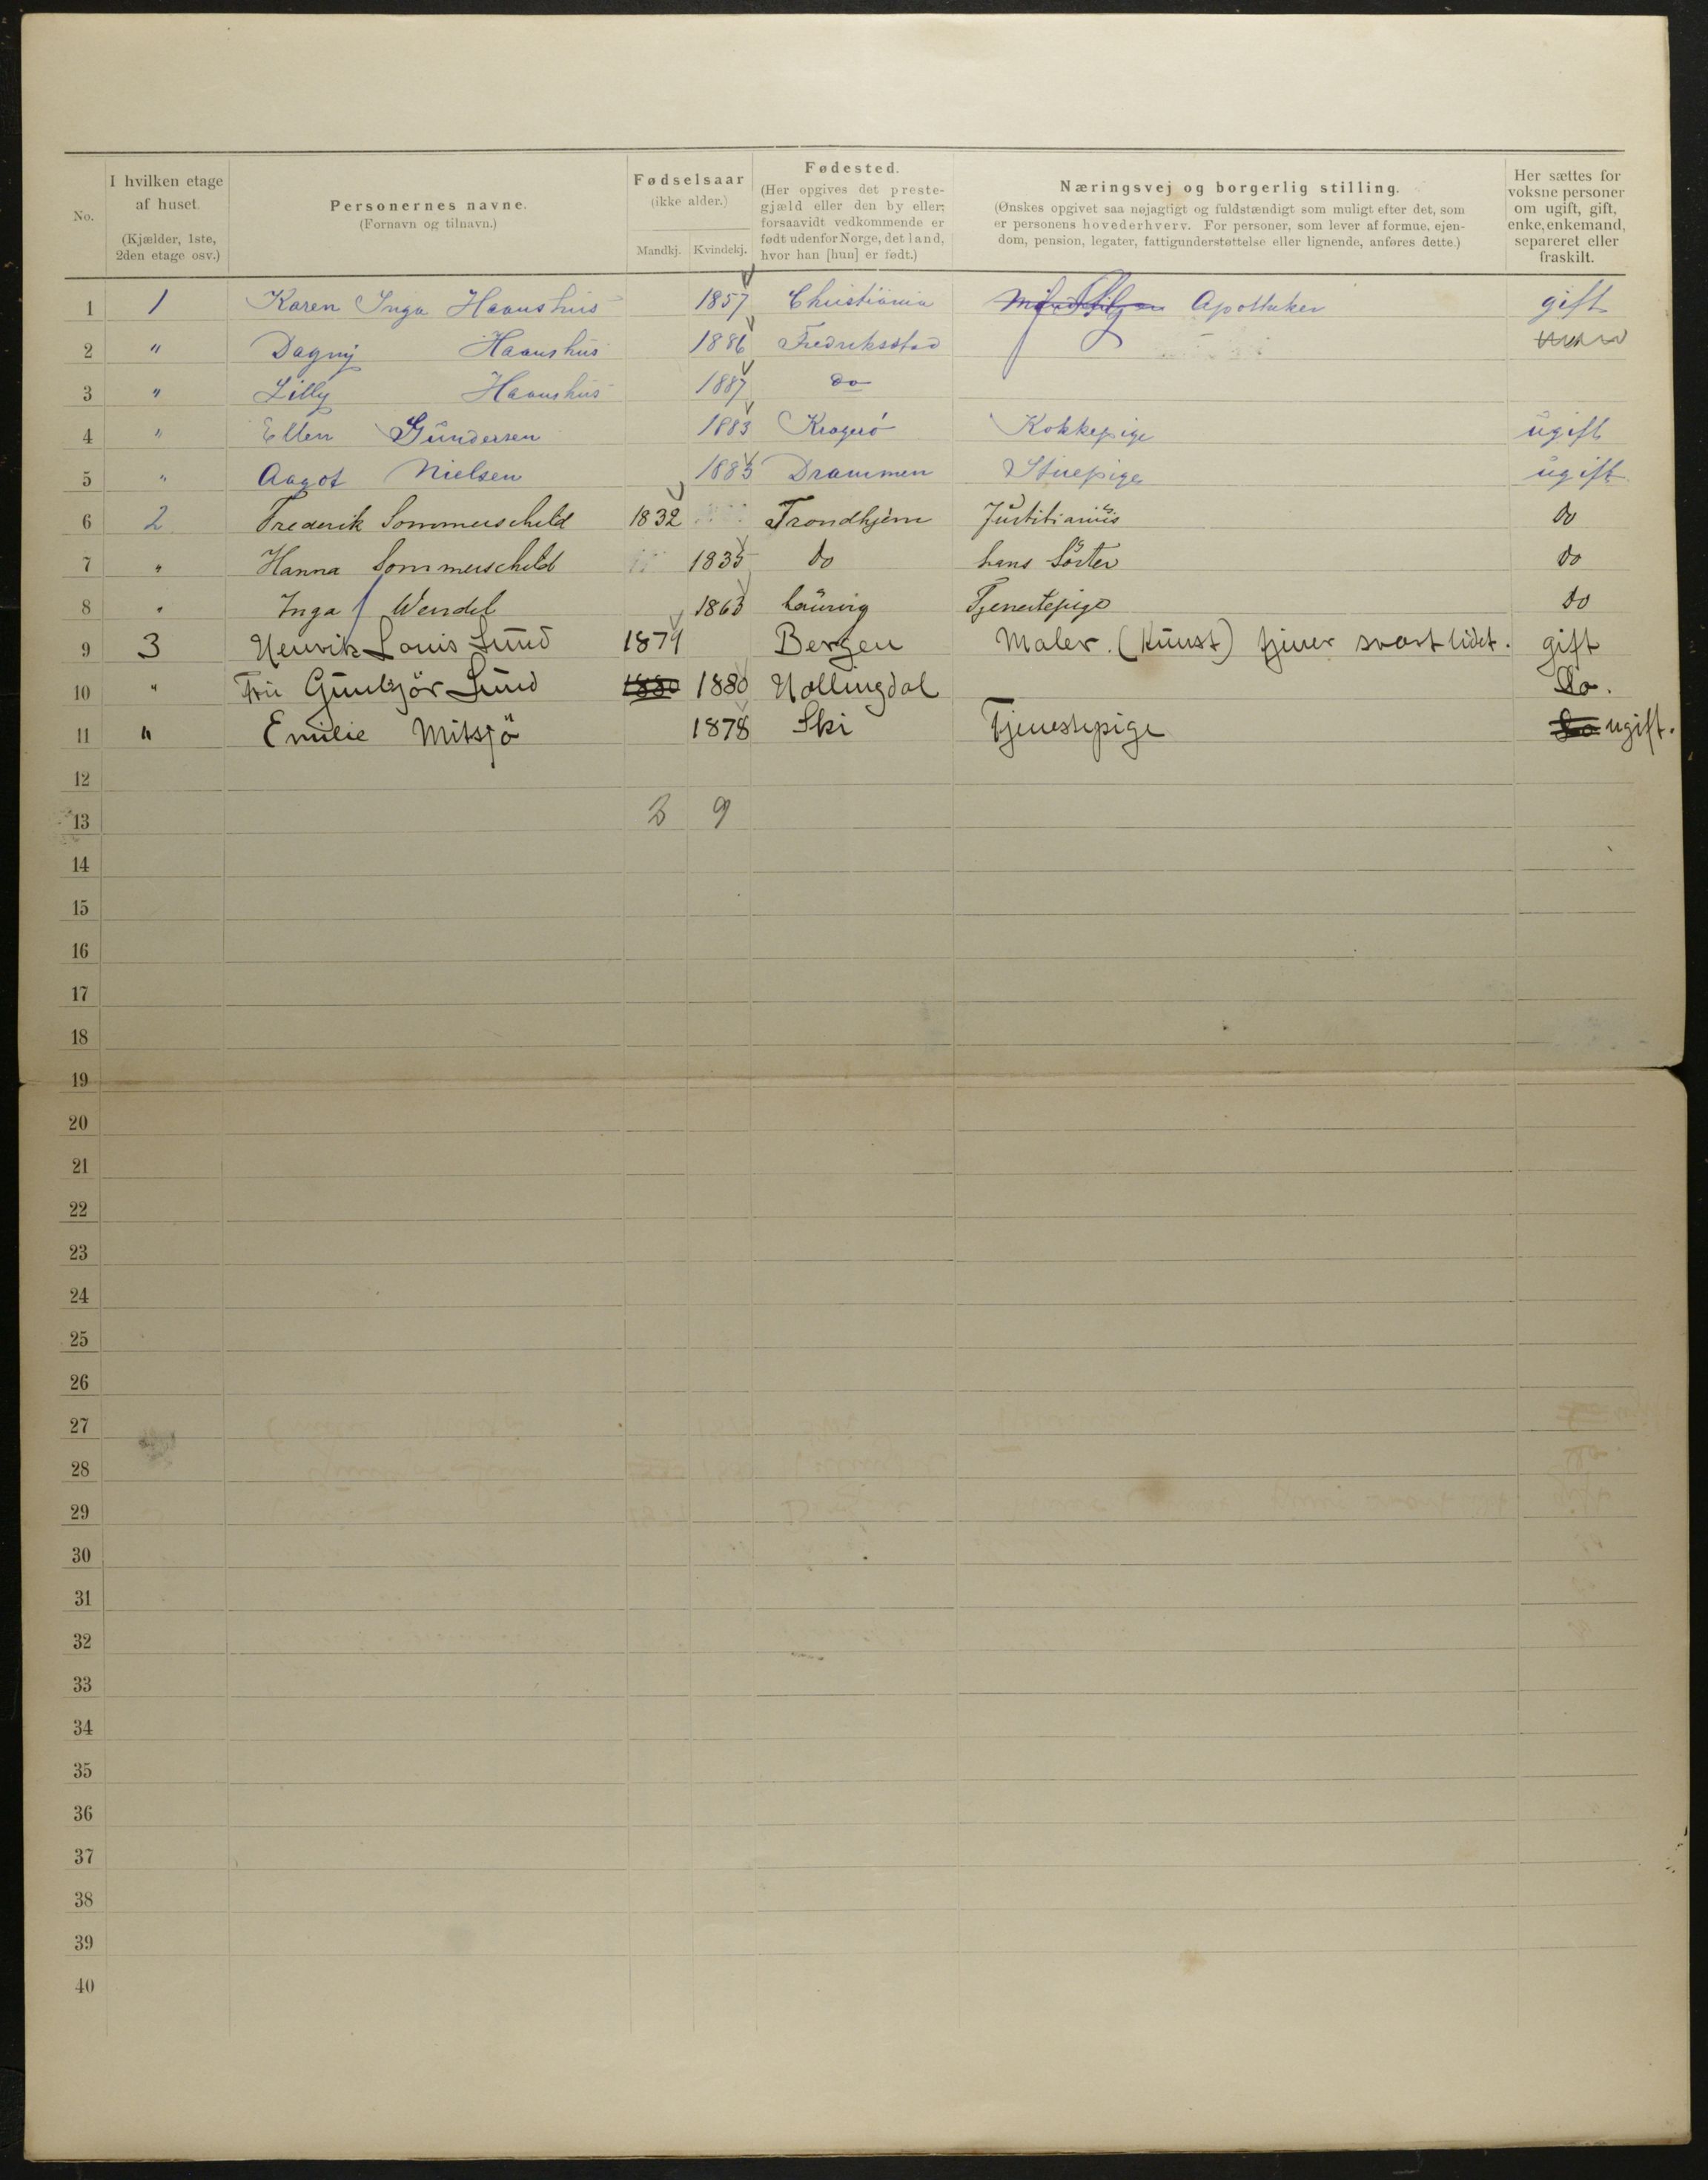 No.
I hvilken etage af huset. (Kjælder, 1ste, 2den etage osv.)
Personernes navne. (Fornavn og tilnavn.)
Fødselsaar (ikke alder.)
Mandkj. Kvindekj.
Fødested. (Her opgives det prestegjæld eller den by eller, forsaavidt vedkommende er født udenfor Norge, det land, hvor han [hun] er født.)
Næringsvej og borgerlig stilling. (Ønskes opgivet saa nøjagtigt og fuldstændigt som muligt efter det, som er personens hovederhverv. For personer, som lever af formue, ejendom, pension, legater, fattigunderstøttelse eller lignende, anføres dette.)
Her sættes for voksne personer om ugift, gift, enke, enkemand, separeret eller fraskilt.
1 1 Karen Inga Haanshus 1857 Christiania Apotheker gift
2 " Dagny Haanshus 1886 Fredriksstad
3 " Lilly Haanshus 1887 do
4 " Ellen Gundersen 1883 Kragerö Kokkepige ugift
5 " Aagot Nielsen 1883 Drammen Stuepige ugift
6 2 Frederik Sommerscheld 1832 Trondhjem Justitiarius do
7 " Hanna Sommerscheld 1835 do hans Söster do
8 " Inga Wendel 1863 Laurvig Tjenestepige do
9 3 Henrik Louis Lund 1879 Bergen Maler. (Kunst) tjener svært lidet. gift
10 " Fru Gunbjör Lund 1880 1880 Hallingdal Do.
11 " Emilie Mitsjö 1878 Ski Tjenestepige Do ugift.
12
13 2 9
14
15
16
17
18
19
20
21
22
23
24
25
26
27
28
29
30
31
32
33
34
35
36
37
38
39
40